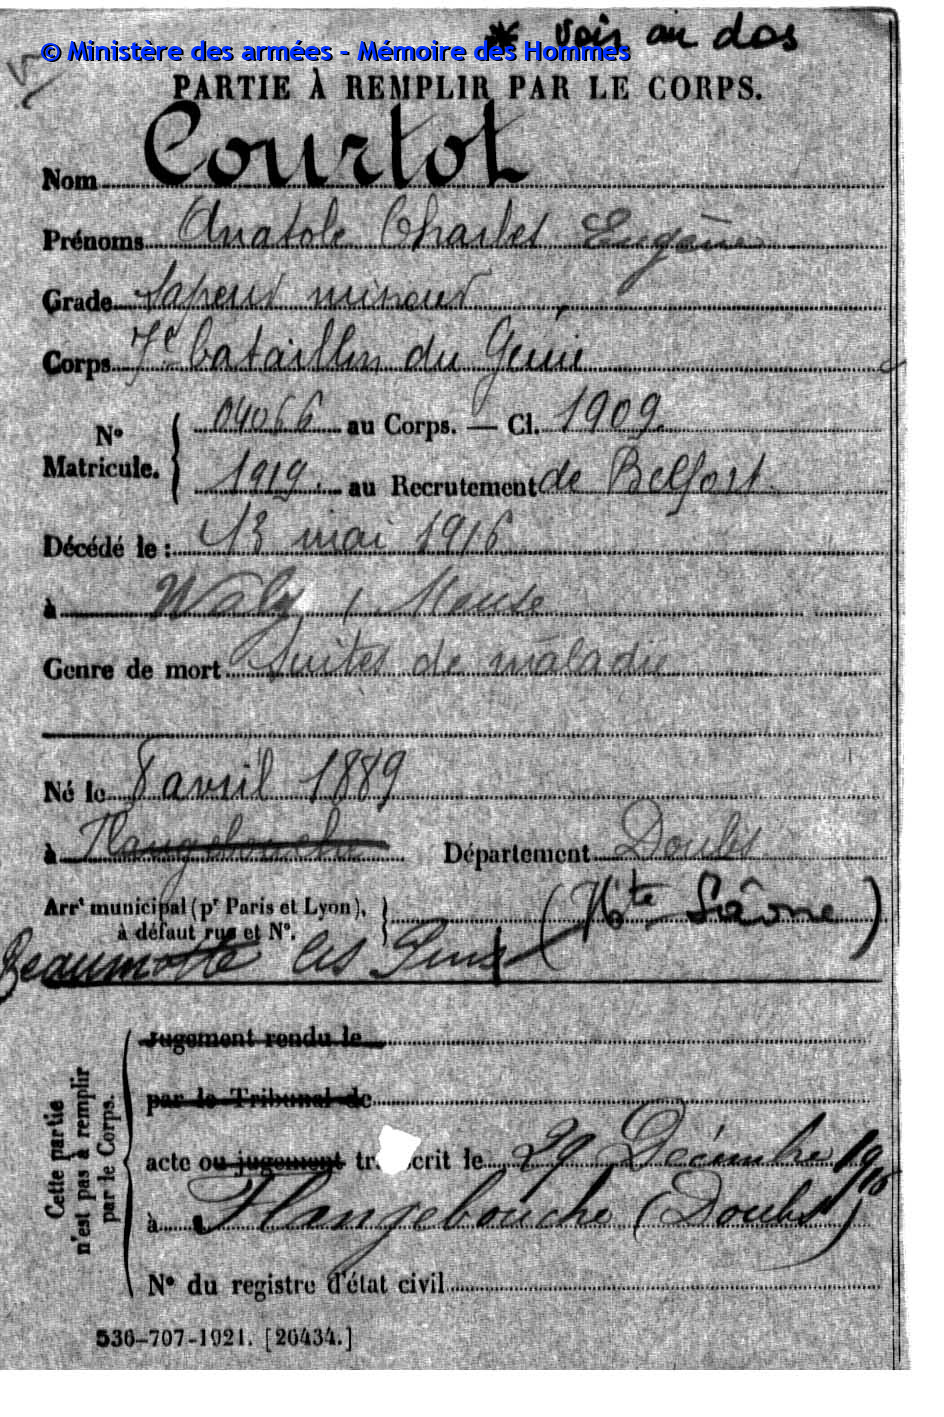 * voir au dos
© Ministère des armées - Mémoire des Hommes
PARTIE À REMPLIR PAR LE CORPS.
Nom Courtot
Prénoms Anatole Charles Eugène
Grade Sapeur mineur
Corps 7e bataillon du Génie
N° Matricule. 04066 au Corps. — Cl. 1909.
1919. au Recrutement de Belfort.
Décédé le : 13 mai 1916
à Waly, Meuse
Genre de mort Suites de maladie
Né le 8 avril 1889
à Flangebouche Département Doubs
Arrt municipal (pr Paris et Lyon), à défaut rue et N°.
Beaumotte les Pins (Hte Saône)
Cette partie n'est pas à remplir par le Corps.
Jugement rendu le
par le Tribunal de
acte ou jugement tr crit le 29 Décembre 1916
à Flangebouche (Doubs)
N° du registre d'état civil
536-707-1921. [26434.]